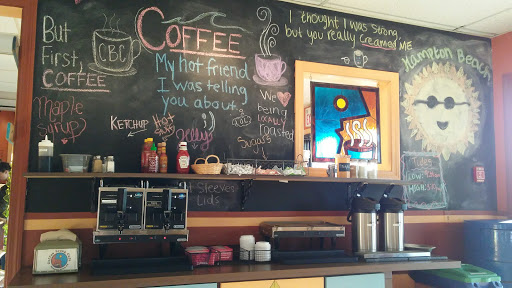 But
First,
COFFEE
CBC
COFFEE
My hot friend
I was telling
you about.
I thought I was Strong,
but you really Creamed ME
Hampton Beach
We
being
locally
roasted
Maple
Syrup
KETCHUP
Hot
Jelly
Sugars
Sleeves
Lids
Tides
LOW
HIGH